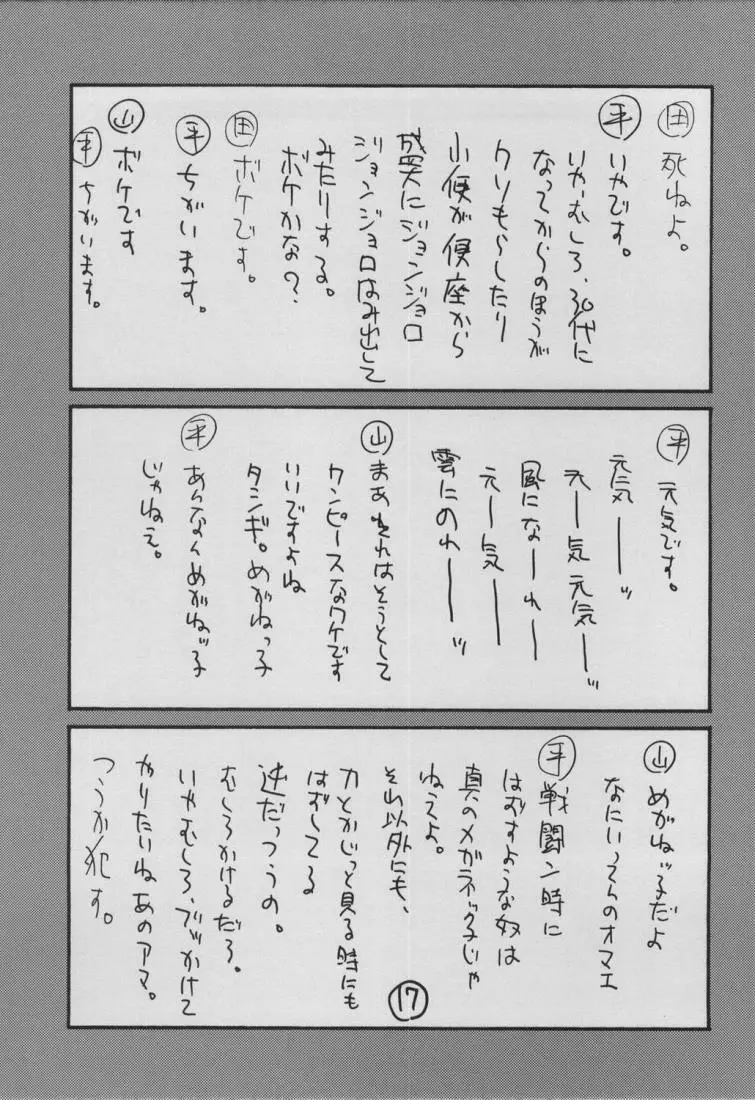 田 死ねよ。
平 いやです。
いや、むしろ、30代に
なってからのほうが
クソもらしたり
小便が便座から
盛大にジョンジョロ
ジョンジョロはみ出して
みたりする。
ボケかな?
田 ボケです。
平 ちがいます。
山 ボケです
平 ちがいます。
平 元気です。
元気ーッ
元ー気元気ーッ
風になーれー
元ー気ー
雲にのれーッ
山 まあそれはそうとして
ワンピースなワケです
いいですよね
タシギ。めがねっ子
平 あんなんめがねッ子
じゃねぇ。
山 めがねッ子だよ
なにいってんのオマエ
平 戦闘ン時に
はずすような奴は
真のメガネッ子じゃ
ねえよ。
それ以外にも、
刀とかじっと見る時にも
はずしてる
逆だっつうの。
むしろかけるだろ。
いやむしろ、ブッかけて
やりたいねあのアマ。
つうか犯す。
17